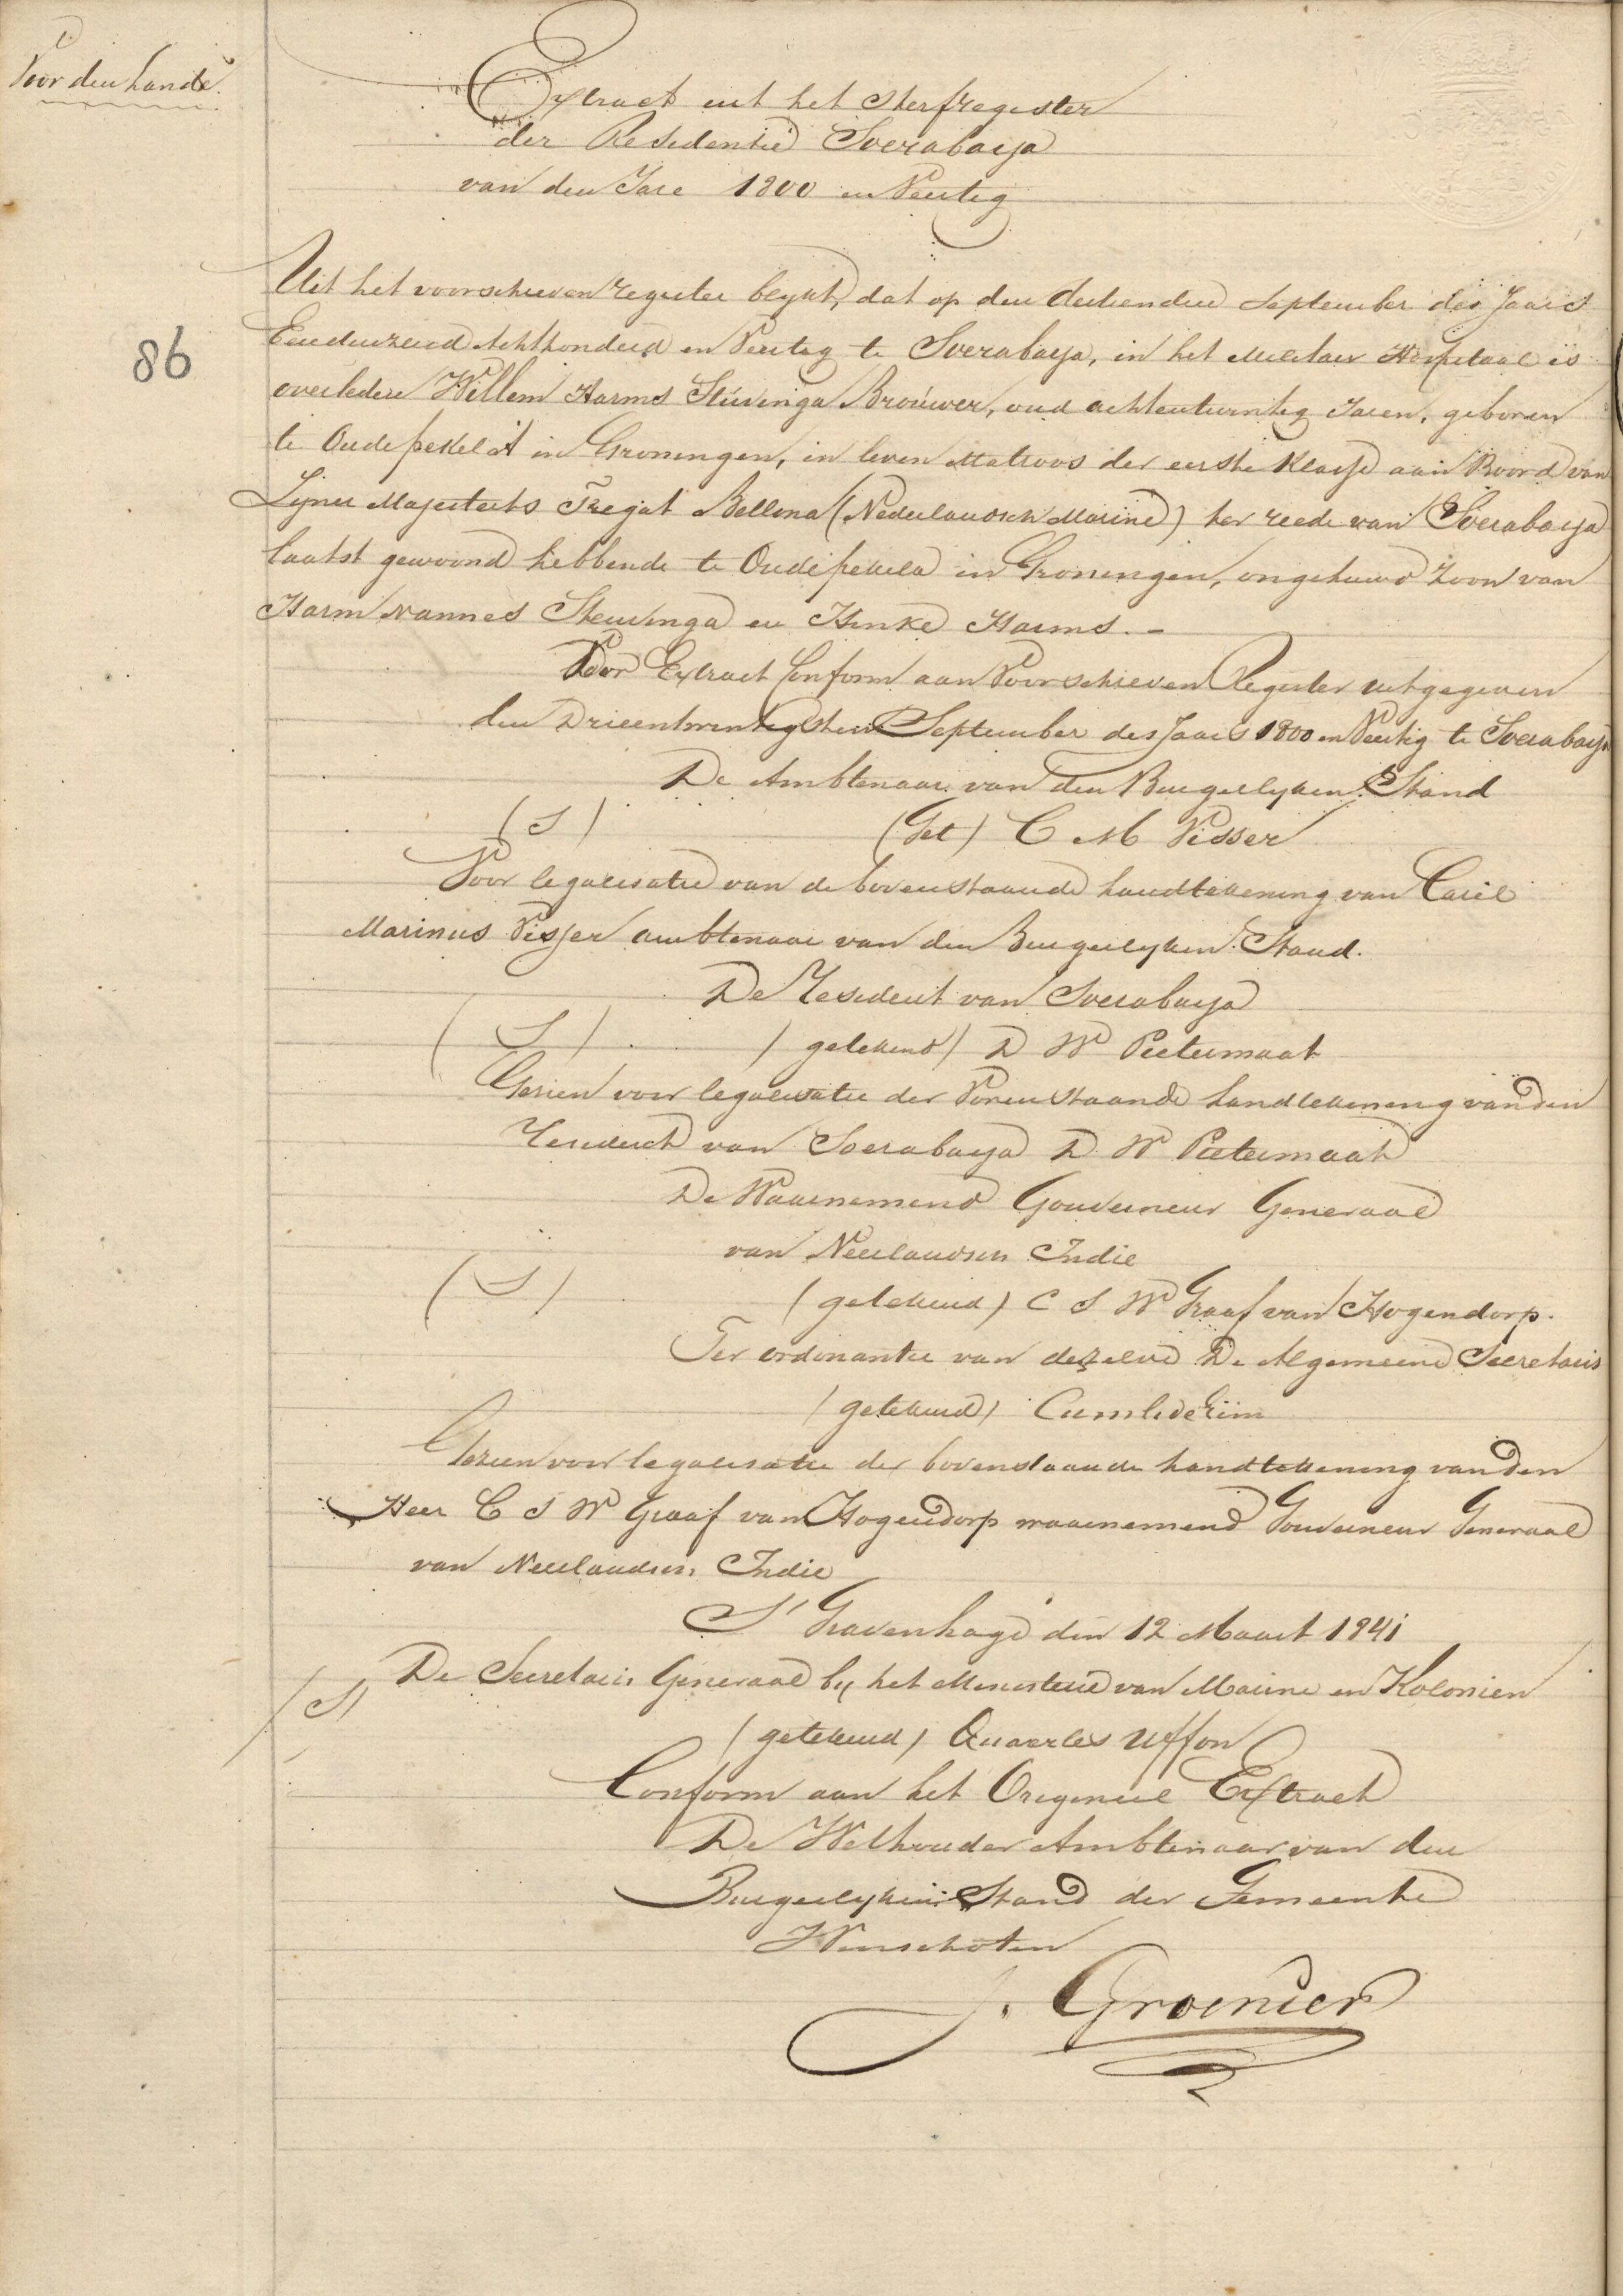 Voor den Lande.
Extract uit het sterfregister
der Residentie Soerabaija
van den Jare 1800 en Veertig
86
Uit het voorschreven register blykt, dat op den dertienden September des Jaars
Eenduizend Achthonderd en Veertig te Soerabaija, in het Militair Hospitaal is
overleden Willem Harms Stuvinga Brouwer, oud achtentwintig Jaren, geboren
te Oude pekela in Groningen, in leven Matroos der eerste Klasse aan Boord van
Zijner Majesteits Fregat Bellona (Nederlandsch Marine) ter reede van Soerabaija
laatst gewoond hebbende te Oudepekela in Groningen, ongehuwd zoon van
Harm Nannes Steuvinga en Hinke Harms. -
Voor Extract Conform aan Voorschreven Register uitgegeven
den Drieentwintigsten September des Jaars 1800 en Veertig te Soerabaija
De Ambtenaar van den Burgerlyken Stand
(S) (Get) C M Visser
Voor legalisatie van de bovenstaande handtekening van Carel
Marinus Visser ambtenaar van den Burgerlyken Stand.
De Resident van Soerabaija
(S) (getekend) D W Pietermaat
Gezien voor legalisatie der Bovenstaande handtekening van den
Resident van Soerabaija D W Pietermaat
De Waarnemend Gouverneur Generaal
van Neerlandsch Indie
(S) (getekend) C S W Graaf van Hogendorp.
Ter ordonantie van dezelve De Algemeene Secretaris
(getekend)
Gezien voor legalisatie der bovenstaande handtekening van den
Heer C S W Graaf van Hogendorp waarnemend Gouverneur Generaal
van Neerlandsch Indie
S' Gravenhage den 12 Maart 1841
De Secretaris Generaal by het Ministerie van Marine en Kolonien
(S) (getekend) Quarles Uffon
Conform aan het Origineel Extract
De Wethouder Ambtenaar van den
Burgerlyken Stand der Gemeente
Winschoten
J. Groenier